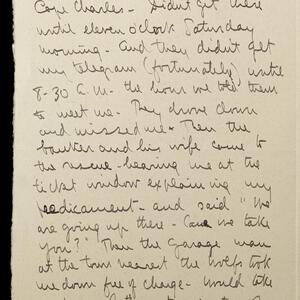 Cape Charles - Didn't get there
until eleven o'clock Saturday
morning. And they didn't get
my telegram (fortunately) until
8-30 A.M. - the hour we told them
to meet me. They drove down
and missed me. Then the
banker and his wife came to
the rescue - hearing me at the
ticket window explaining my
predicament - and said "We
are going up there - Can we take
you?" Then the Garage man
at the town nearest the took
me down free of charge - Would take